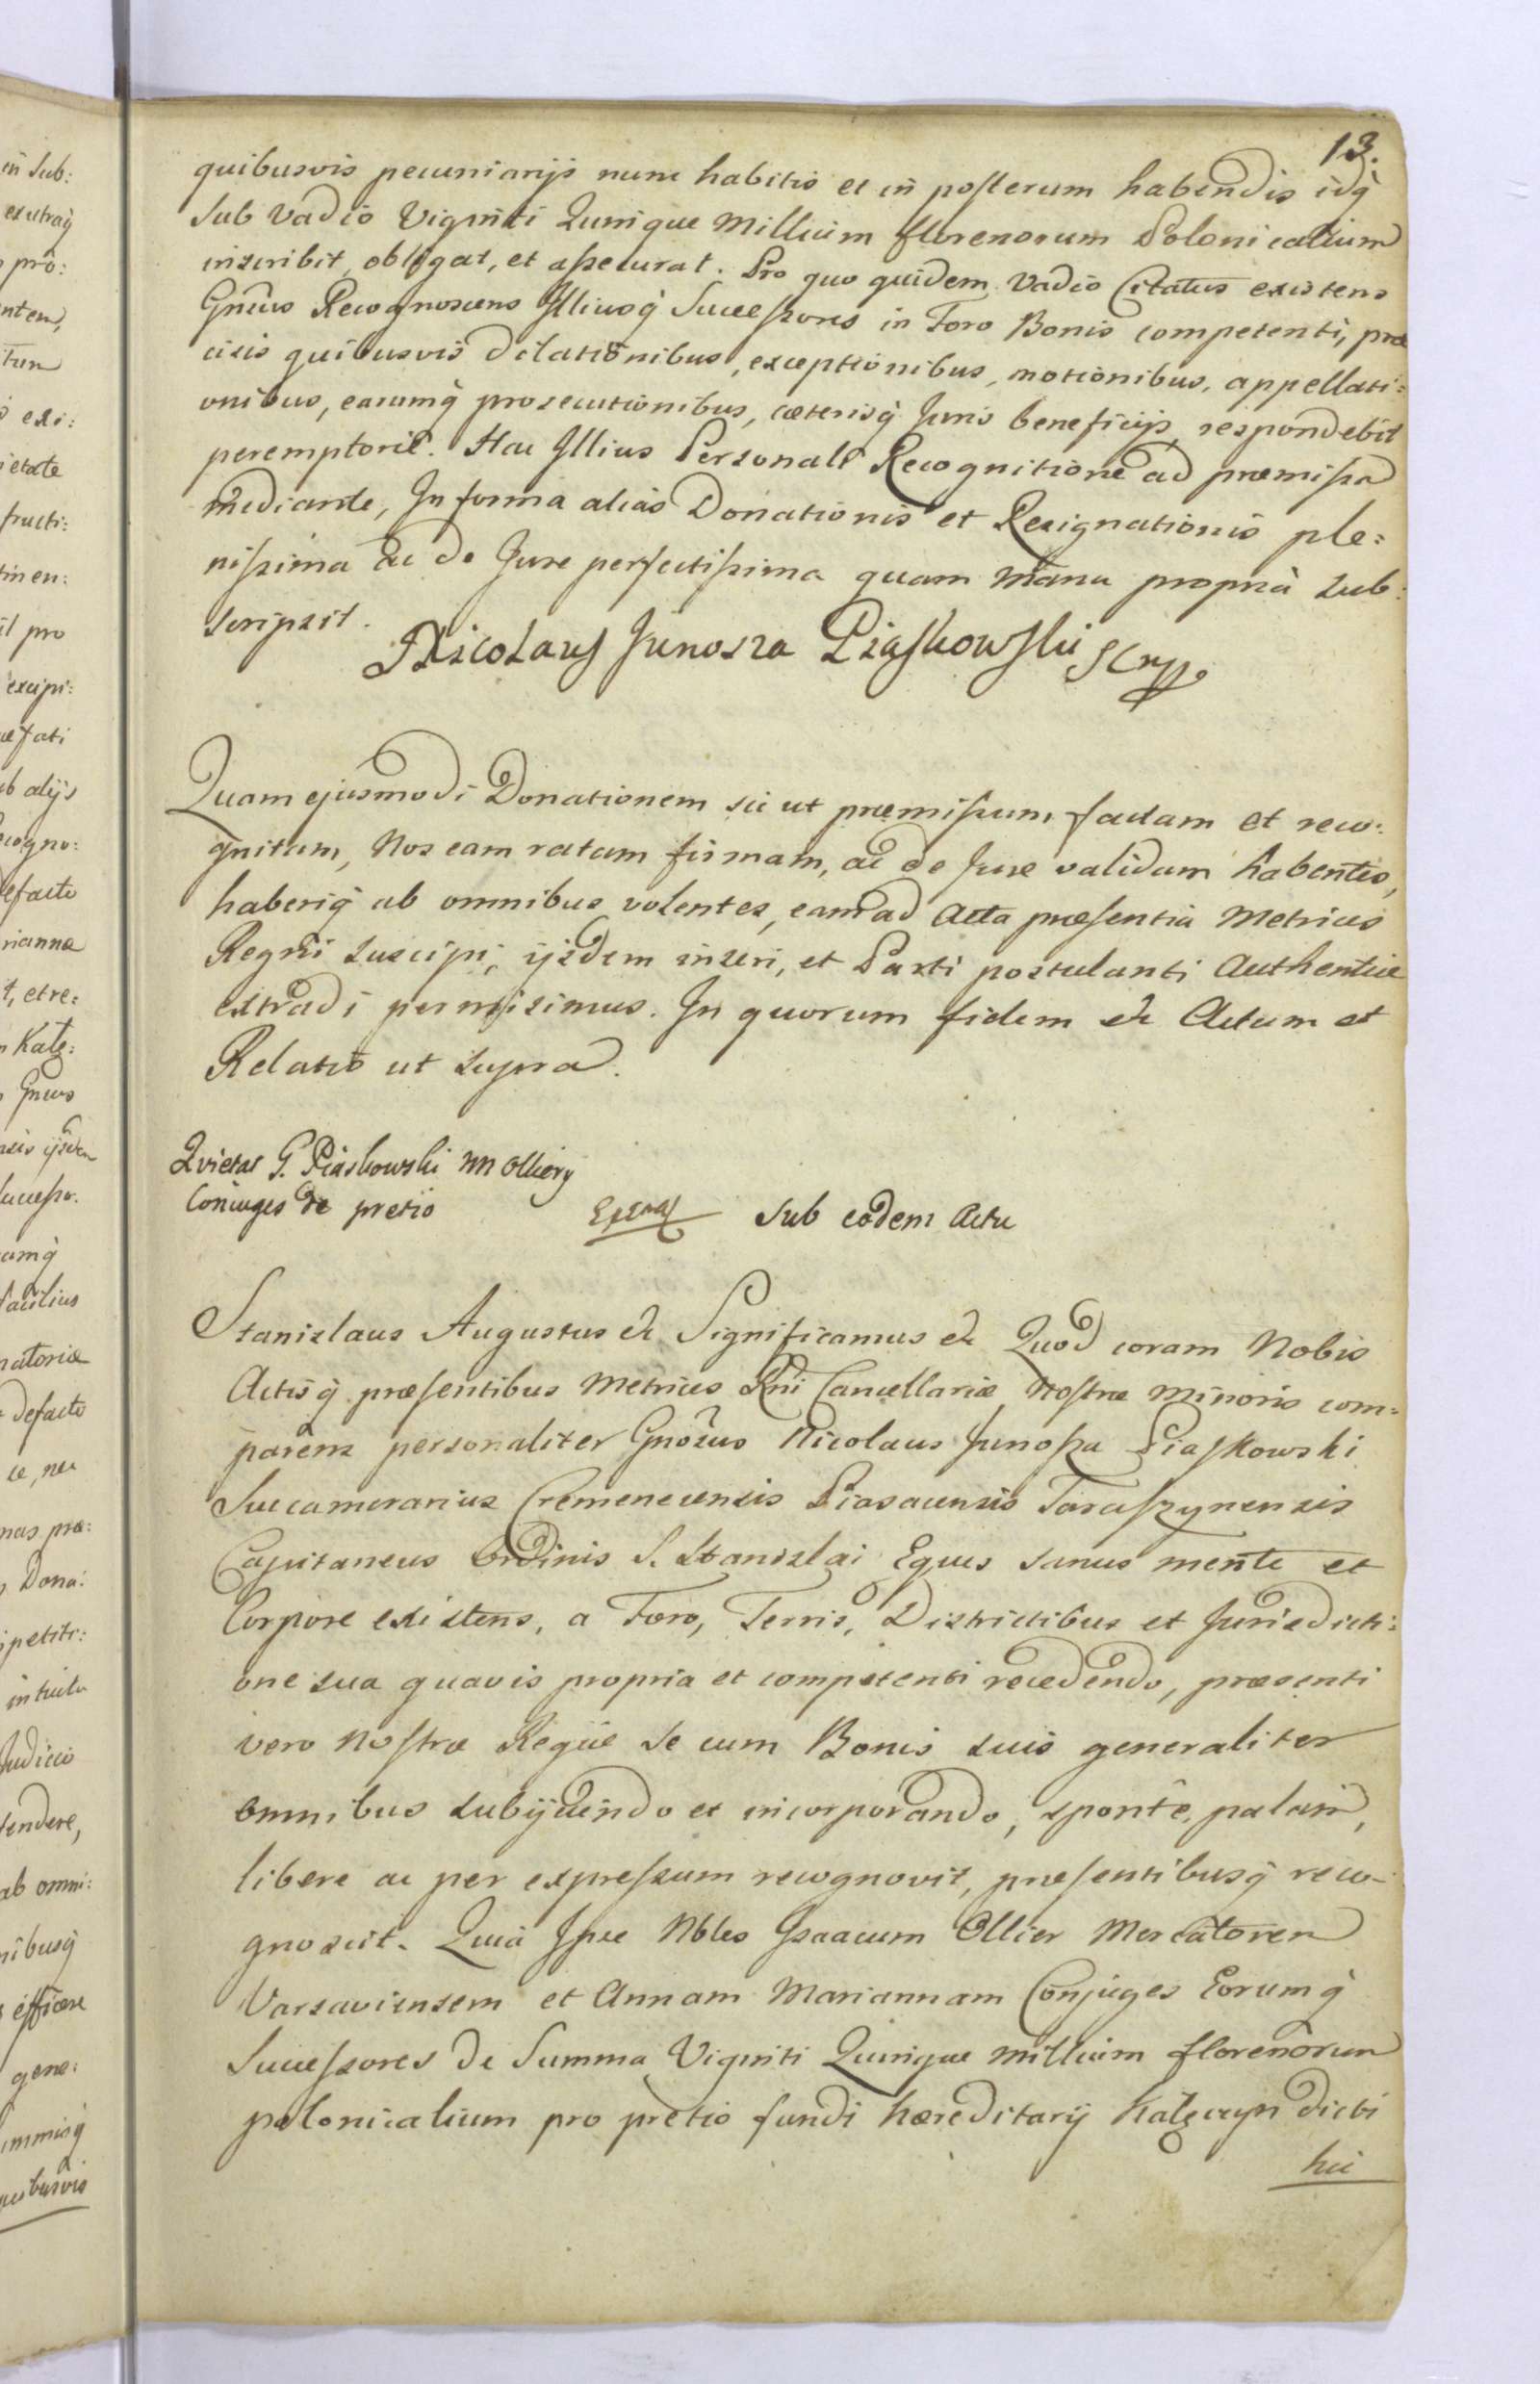 13.
quibusvis pecuniarijs nunc habitis et in posterum habendis idq̀
Sub Vadio Viginti Quinque Millium florenorum Polonicalium
inscribit, obligat, et assecurat. Pro quo quidem Vadio Citatus existens
Gnẽus Recognoscens Illiusq̀ Successores in Foro Bonis competenti, præ
cisis quibusvis dilationibus, exceptionibus, motionibus, appellati:
onibus, earumq̀ prosecutionibus, cæterisq̀ Juris beneficijs, respondebit
peremptorie. Hac Illius Personali Recognitione ad præmissa
mediante, In forma alias Donationis et Resignationis ple:
nissima ac de Jure perfectissima quam manu proprià sub:
scripsit.
Nicolaus Junosza Piaskowski
Quam ejusmodi Donationem sic ut præmissum factam et reco:
gnitam, Nos eam ratam firmam, ac de Jure validam habentes,
haberiq̀ ab omnibus volentes, eam ad Acta præsentia Metrices
Regni suscipi, ijsdem inseri, et Parti postulanti Authentice
extradi permisimus. In quorum fidem &c Actum et
Relatio ut supra.
Quietat G. Piaskowski NN Olliery
Coniuges de pretio
Sub eodem Actu
Stanislaus Augustus &c Significamus &c Quod coram Nobis
Actisq̀ præsentibus Metrices Rni Cancellariæ Nostræ Minoris com=
parens personaliter Gnosus Nicolaus Junosza Piaskowski
Succamerarius Cremenecensis Piasacensis Taraszynensis
Capitaneus Ordinis S. Stanislai Eques sanus mente et
Corpore existens, a Foro, Terris, Districtibus et Jurisdicti:
one sua quavis propria et competenti recedendo, præsenti
vero Nostræ Regiæ se cum Bonis suis generaliter
omnibus subijciendo et incorporando, sponte, palam,
libere ac per expressum recognovit, præsentibusq̀ reco-
gnoscit. Quia Ipse Nbles Isaacum Ollier Mercatorem
Varsaviensem et Annam Mariannam Conjuges Eorumq̀
Successores de Summa Viginti Quinque millium florenorum
polonicalium pro pretio fundi hæreditarij Kałęczyn dicti
hic